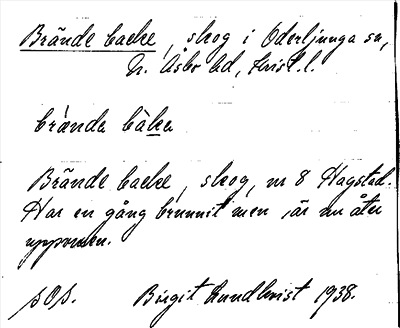 Brände backe, skog i Oderljunga sn,
N. Åsbo hd, Krist. l.
brǽnda bàka
Brände backe, skog, nr 8 Hagstad.
Har en gång brunnit men är nu åter
uppvuxen.
Birgit Lundkvist 1938.